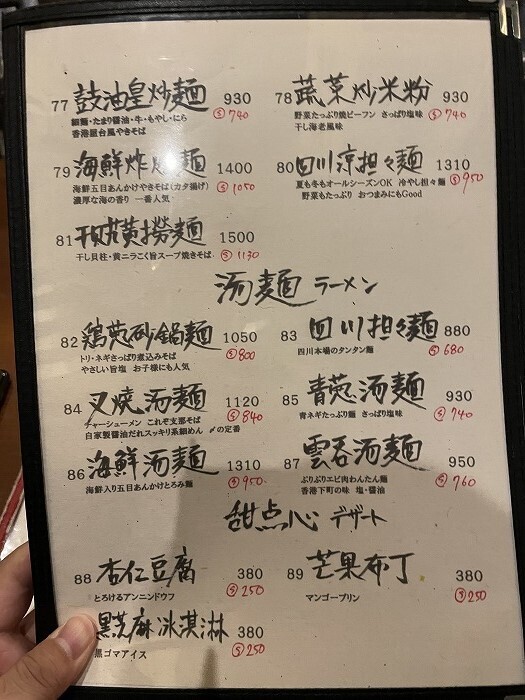 77 鼓油皇炒麵 930
Ⓢ740
細麺・たまり醤油・牛・もやし・にら
香港屋台風やきそば
78 蔬菜炒米粉 930
Ⓢ740
野菜たっぷり焼ビーフン さっぱり塩味
干し海老風味
79 海鮮炸炒麵 1400
Ⓢ1050
海鮮五目あんかけやきそば(カタ揚げ)
濃厚な海の香り 一番人気
80 四川涼担々麵 1310
Ⓢ950
夏も冬もオールシーズンOK 冷やし担々麺
野菜もたっぷり おつまみにもGood
81 干貝黄撈麵 1500
Ⓢ1130
干し貝柱・黄ニラこく旨スープ焼きそば
湯麵 ラーメン
82 鶏葱砂鍋麵 1050
Ⓢ800
トリ・ネギさっぱり煮込みそば
やさしい旨塩 お子様にも人気
83 四川担々麵 880
Ⓢ680
四川本場のタンタン麺
84 叉焼湯麵 1120
Ⓢ840
チャーシューメン これぞ支那そば
自家製醤油だれスッキリ系細めん 〆の定番
85 青葱湯麵 930
Ⓢ740
青ネギたっぷり麺 さっぱり塩味
86 海鮮湯麵 1310
Ⓢ950
海鮮入り五目あんかけとろみ麺
87 雲呑湯麵 950
Ⓢ760
ぷりぷりエビ肉わんたん麺
香港下町の味 塩・醤油
甜点心 デザート
88 杏仁豆腐 380
Ⓢ250
とろけるアンニンドウフ
89 芒果布丁 380
Ⓢ250
マンゴープリン
黒芝麻冰淇淋 380
Ⓢ250
黒ゴマアイス